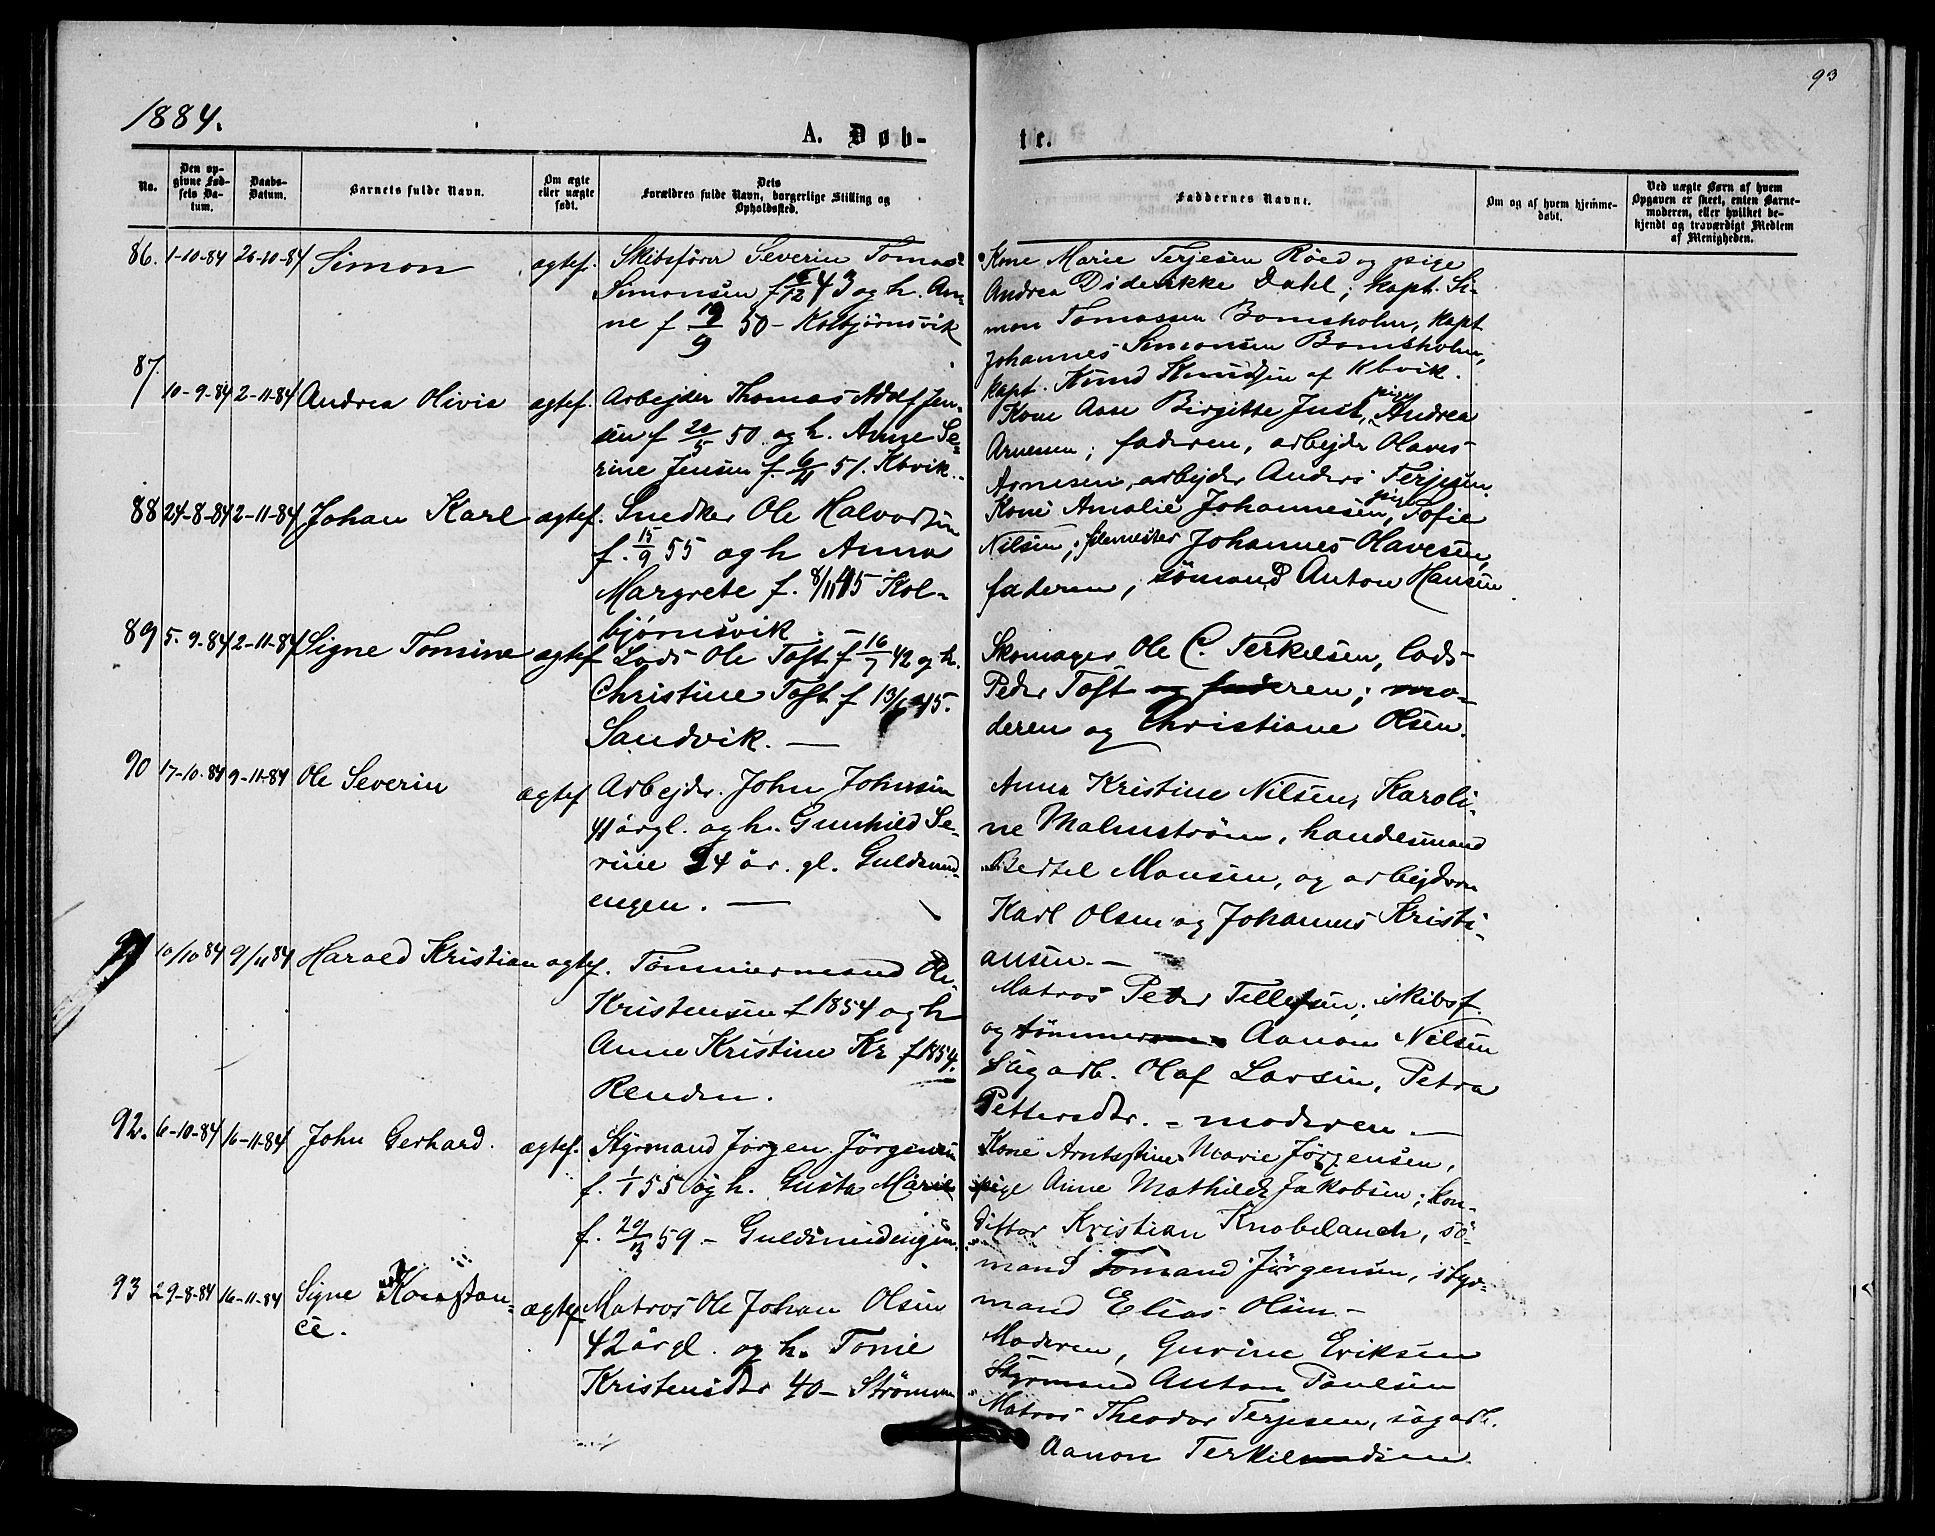 93
1884.
A. Døb-
te.
No.
Den op-
givne Fød-
sels Da-
tum.
Daabs-
Datum.
Barnets fulde Navn.
Om ægte
eller uægte
født.
Dets
Forældres fulde Navn, borgerlige Stilling og
Opholdssted.
Faddernes Navne.
Om og af hvem hjemme-
døbt.
Ved uægte Børn af hvem
Opgaven er skeet, enten Barne-
moderen, eller hvilket be-
kjendt og troværdigt Medlem
af Menigheden.
86. 1-10-84 26-10-84 Simon ægtef.
Skibsfører Severin Tomas
Simonsen f. 12 43 og h. An-
ne f 19/9 50 - Kolbjørnsvik
Kone Marie Terjesen Röed og pige
Andrea Diderikke Dahl; kapt. Si-
mon Tomassen Bomsholm, kapt
Johannes Simonsen Bomsholm,
kapt. Knud Knudsen af Kbvik.
87. 10-9-84 2-11-84 Andrea Olivia ægtef.
Arbejder Thomas Adolf Jen-
sen f 20/5 50 og h. Anne Se-
rine Jensen f. 6/11 51. Kbvik.
Kone Aase Birgitte Just, pige Andrea
Arnesen; faderen, arbejder Olaves
Arnesen, arbejder Anders Terjesen.
88 24-8-84 2-11-84 Johan Karl ægtef.
Snedker Ole Halvorsen
f. 15/9 55 og h Anna
Margrete f. 8/11 45 Kol-
bjørnsvik. -
Kone Amalie Johannesen, pige Tofie
Nilsen; Johannes Olavesen,
faderen, sömand Anton Hansen
89 5-9-84 2-11-84 Signe Tomine ægtef
Lods Ole Toft f 16/7 42 og h.
Christine Toft f 13/ 45.
Sandvik. -
Skomager Ole C. Terkelsen, lods
Peder Toft og faderen; mo-
deren og Christiane Olsen.
90 17-10-84 9-11-84 Ole Severin ægtef
Arbejder John Johnsen
41 årgl. og h. Gunhild Se-
rine 34 år. gl. Guldsmed-
engen. -
Anna Kristine Nilsen, Karoli-
ne Malmström, handelsmand
Bertel Monsen, og arbejderne
Karl Olsen og Johannes Kristi-
ansen. -
91 10/10 84 9/11 84 Harald Kristian ægtef.
Tömmermand Ole
Kristensen f 1854 og h
Anne Kristine Kr f 1854.
Renden.
Matros Peder Tellefsen, skibsf.
og tömmerm. Aanon Nilsen
Sagarb. Olaf Larsen, Petra
Pettersdtr. - moderen. -
92. 6-10-84 16-11-84 John Gerhard. ægtef.
Styrmand Jörgen Jörgensen
f. 1/1 55 og h. Gusta Marie
f. 29/3 59 - Guldsmedengen.
Kone Marie Jörgensen,
pige Anne Mathilde Jakobsen; kon-
ditor Kristian Knobelauch, sö-
mand Tomand Jörgensen, styr-
mand Elias Olsen -
93 29-8-84 16-11-84 Signe Konstan-
ce. ægtef
Matros Ole Johan Olsen
42 årgl. og h. Tonie
Kristensdtr 40 - Strömmen
Moderen, Gurine Eriksen
Styrmand Anton Paulsen
Matros Theodor Terjesen, sagarb.
Aanon Terkelsen